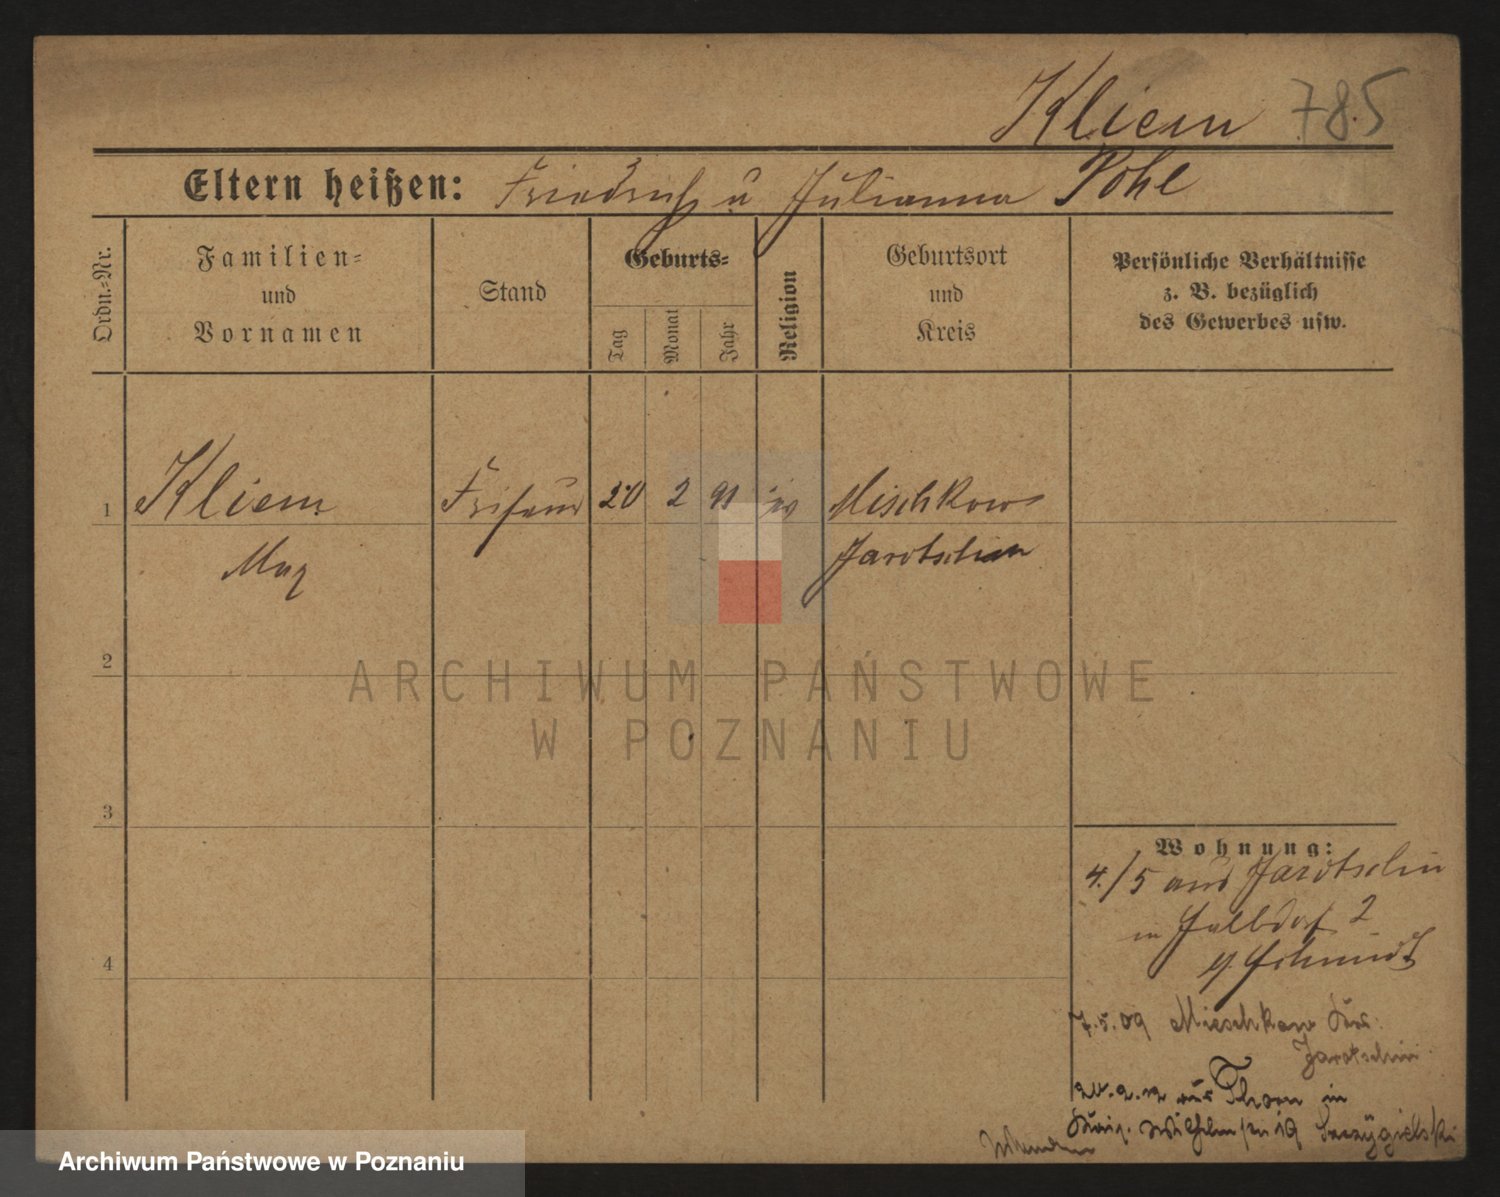 Kliem 785
Eltern heißen: Friedrich u Julianna Pohl
Ordn.-Nr.
Familien-
und
Vornamen
Stand
Geburts-
Tag
Monat
Jahr
Religion
Geburtsort
und
Kreis
Persönliche Verhältnisse
z. B. bezüglich
des Gewerbes usw.
1 Kliem Friseur 20 2 91 ev Mischkow
Max Jarotschin
2
ARCHIWUM PAŃSTWOWE
W POZNANIU
3
Wohnung:
4./5 aus Jarotschin
in 2
4
Schmidt
7.5.09 Mieschkow Krs.
Jarotschin
aus Thorn in
19
Archiwum Państwowe w Poznaniu